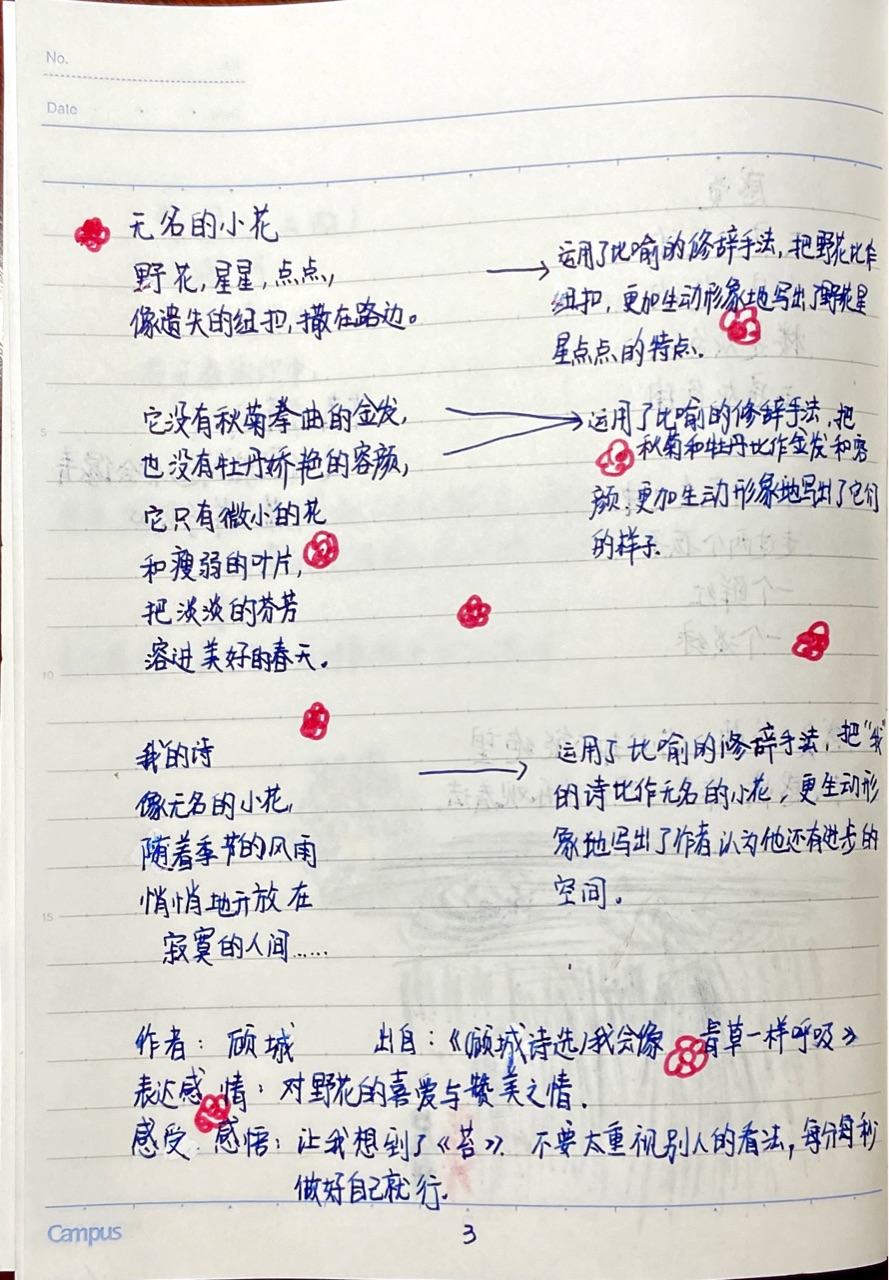 No.
Date
无名的小花
野花,星星,点点,
像遗失的纽扣,撒在路边。
运用了比喻的修辞手法,把野花比作
纽扣,更加生动形象地写出了野花星
星点点的特点.
它没有秋菊拳曲的金发,
也没有牡丹娇艳的容颜,
它只有微小的花
和瘦弱的叶片,
把淡淡的芬芳
溶进美好的春天。
运用了比喻的修辞手法,把
秋菊和牡丹比作金发和容
颜,更加生动形象地写出了它们
的样子.
我的诗
像无名的小花,
随着季节的风雨
悄悄地开放在
寂寞的人间……
运用了比喻的修辞手法,把“我”
的诗比作无名的小花,更生动形
象地写出了作者认为他还有进步的
空间。
作者:顾城 出自:《顾城诗选/我会像青草一样呼吸》
表达感情:对野花的喜爱与赞美之情.
感受 感悟:让我想到了《苔》.不要太重视别人的看法,每分每秒
做好自己就行.
5
10
15
Campus
3